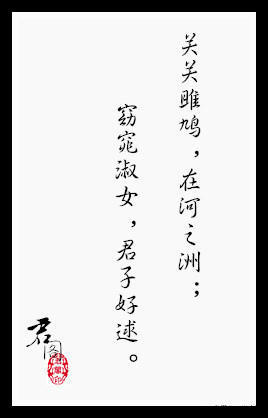 关关雎鸠，在河之洲；
窈窕淑女，君子好逑。
君
阁